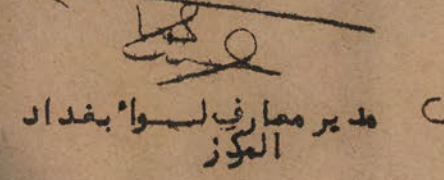 مدير معارف لـــواء بغداد
المركز